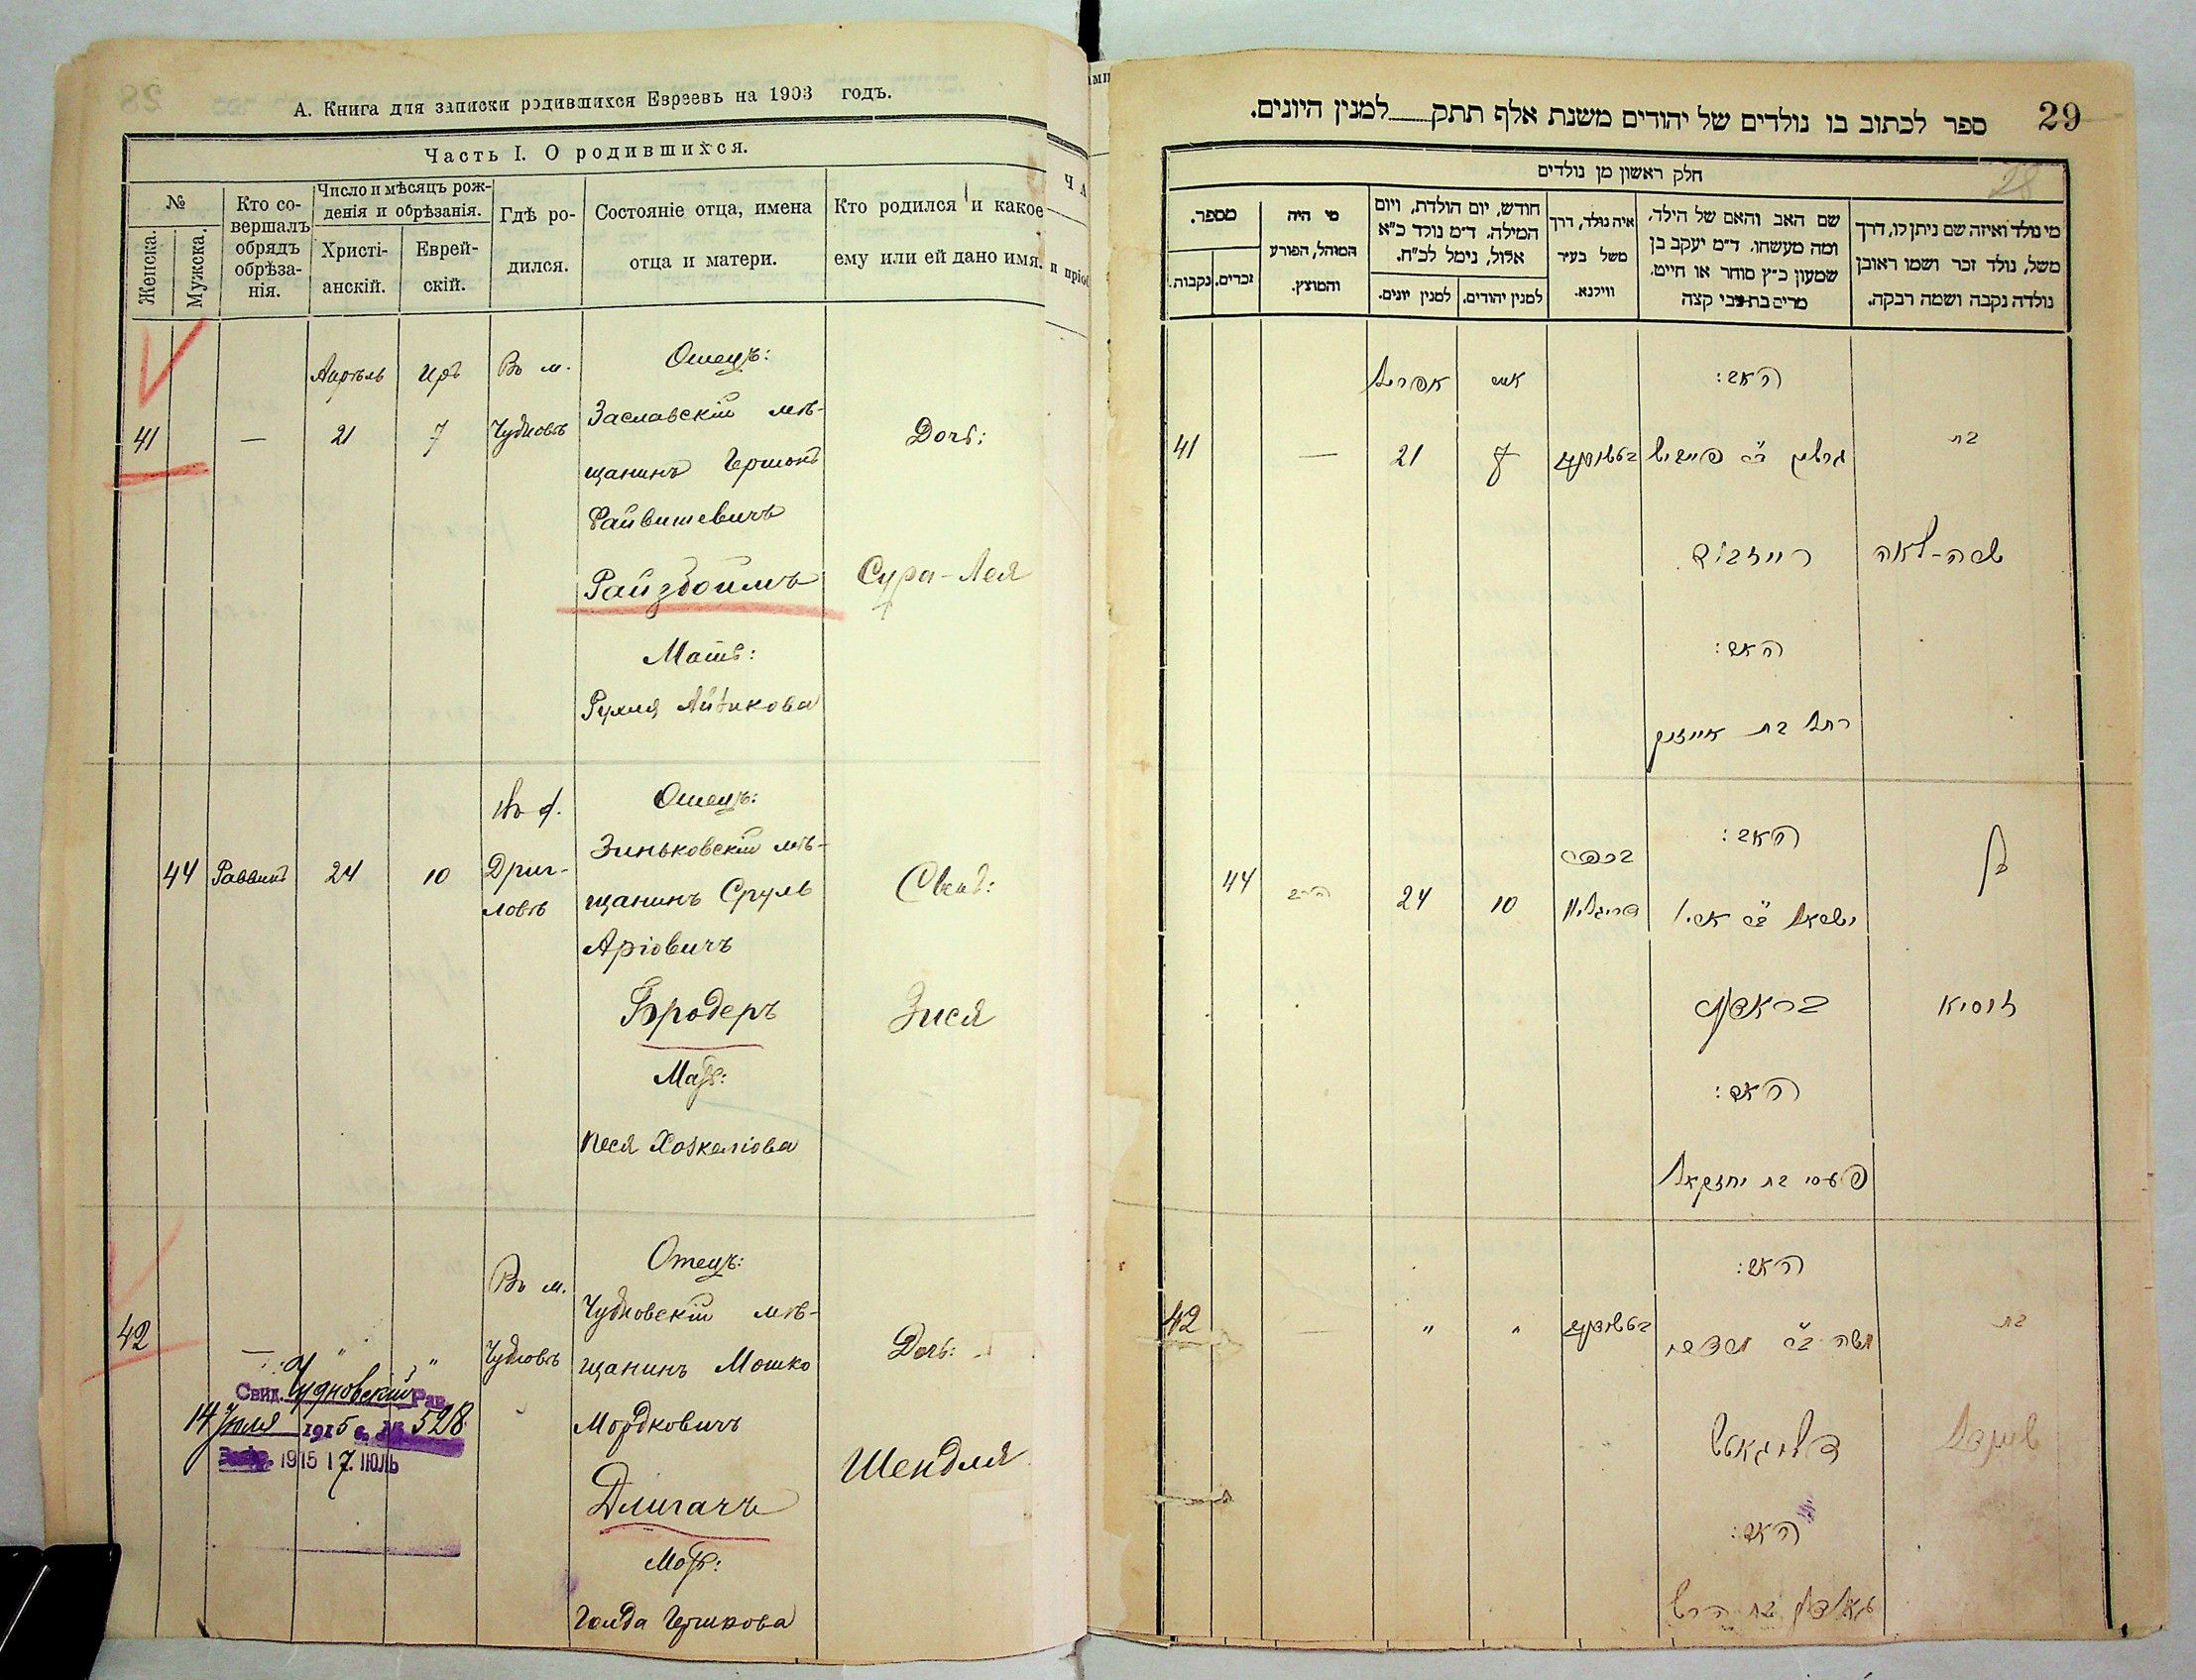 А. Книга для записки родившихся Евреевъ на 1903 годъ.
Часть I. О родившихся.
№
Женска.
Мужска.
Кто со-
вершалъ
обрядъ
обрѣза-
нія.
Число и мѣсяцъ рож-
денія и обрѣзанія.
Христі-
анскій.
Еврей-
скій.
Гдѣ ро-
дился.
Состояніе отца, имена
отца и матери.
Кто родился и какое
ему или ей дано имя.
Апрѣль
Іръ
Въ м.
Отецъ:
41
—
21
7
Чудновъ
Заславскій мѣ-
щанинъ Гершонъ
Файвишевичъ
Райзбоймъ
Мать:
Рухля Айзикова
Дочь:
Сура-Лея
44
Раввинъ
24
10
Дриг-
ловъ
Отецъ:
Зиньковскій мѣ-
щанинъ Сруль
Аріовичъ
Бродеръ
Мать:
Песя Хаскеліова
Сынъ:
Зися
42
—
"
"
Въ м.
Чудновъ
Отецъ:
Чудновскій мѣ-
щанинъ Мошко
Мордковичъ
Длигачъ
Мать:
Голда Гершкова
Дочь:
Шендля
Свид. Чудновскій Рав.
14 Іюля 1915 г. № 528
1915 17. ІЮЛЬ
29
28
ספר לכתוב בו נולדים של יהודים משנת אלף תתק למנין היונים.
חלק ראשון מן נולדים
מי נולד ואיזה שם ניתן לו, דרך
משל, נולד זכר ושמו ראובן
נולדה נקבה ושמה רבקה.
שם האב והאם של הילד,
ומה מעשהו. ד״מ יעקב בן
שמעון כ״ץ סוחר או חייט,
מרים בת צבי קצה
איה נולד, דרך
משל בעיר
ווילנא.
חודש, יום הולדת, ויום
המילה. ד״מ נולד כ״א
אלול, נימל לכ״ח.
למנין יהודים.
למנין יונים.
מי היה
המוהל, הפורע
והמוצץ.
מספר.
זכרים.
נקבות.
האב:
אייר
אפריל
בת
גרשון ב״ר פייוויש
7
21
—
41
שרה-לאה
רייזבוים
האם:
רחל בת אייזיק
האב:
בן
ישראל ב״ר
10
24
הרב
44
זוסיא
בראדער
האם:
פעסי בת יחזקאל
האב:
בת
משה ב״ר מרדכי
"
"
—
42
שיינדל
דליגאטש
האם:
גאלדע בת הירש